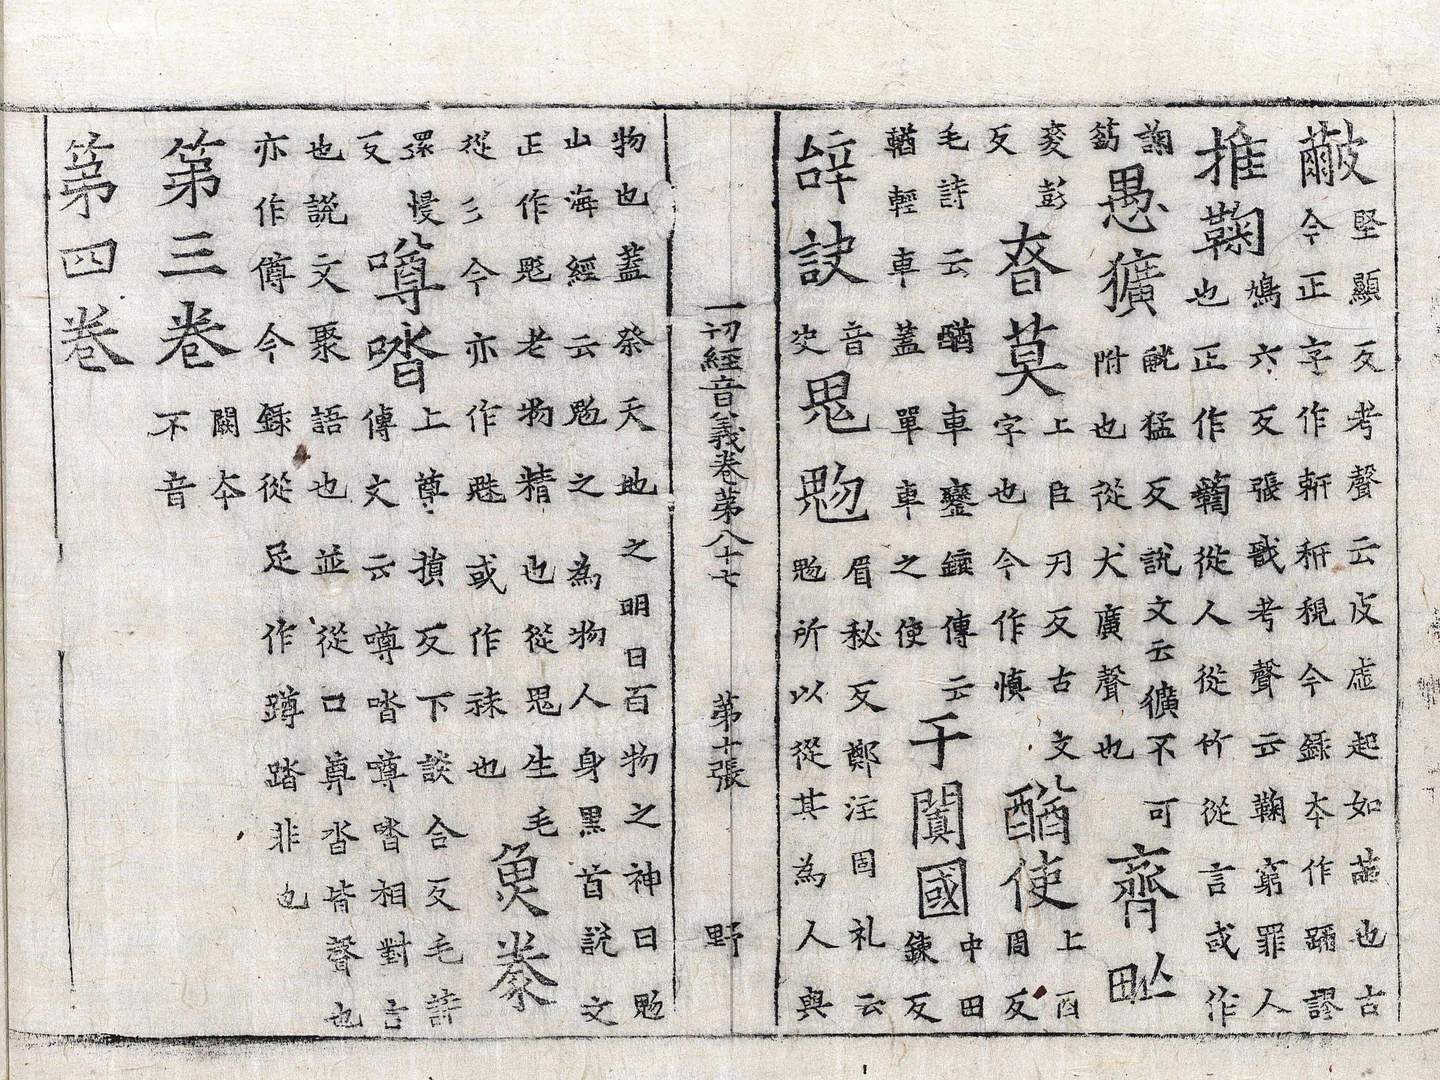 皽堅顯反考聲云皮虛起如繭也古
今正字作䅌今錄本作謬
推鞠鳩六反張戩考聲云鞠窮罪人
也正作𥷚從人從竹從言或作
諊
愚獷觥猛反說文云獷不可
附也從犬廣聲也
齊毗
麥彭
反
昚莫上臣刃反古文
字也今作慎
酋使上酉
周反
毛詩云輶車鑾鑣傳云
輶輕車蓋單車之使
于闐國中田
鍊反
辝訣音
史
鬼鬽眉秘反鄭注周礼云
鬽所以從其為人與
一切經音義卷第八十七 第十張 野
物也蓋祭天地之明日百物之神曰鬽
山海經云鬽之為物人身黑首說文
正作鬽老物精也從鬼生毛
從彡今亦作魅或作袜也
魚豢
慢
反
噂㗳上尊損反下談合反毛詩
傳文云噂㗳噂㗳相對言
也說文聚語也並從口尊沓皆聲也
亦作僔今錄從足作蹲踏非也
第三卷闕本
不音
第四卷